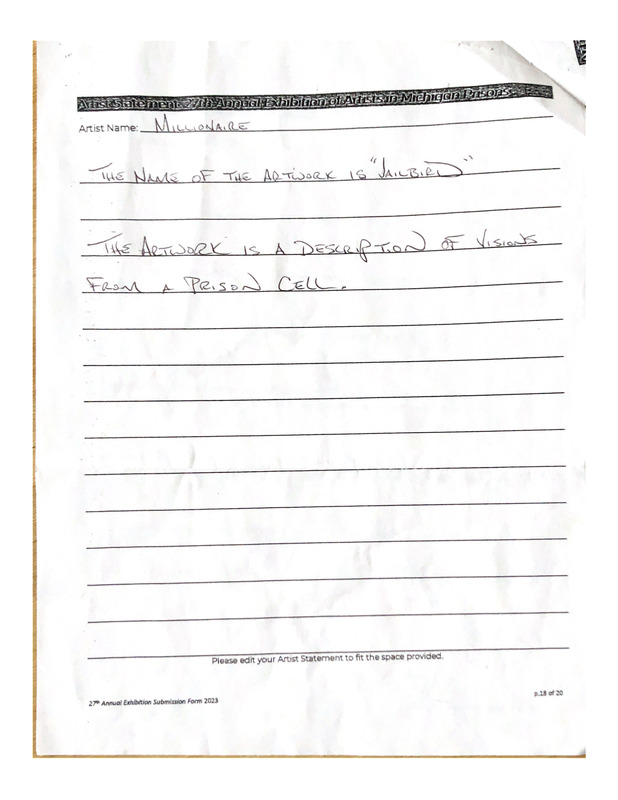 Artist Statement: 27th Annual Exhibition of Artists in Michigan Prisons
Artist Name: MILLIONAIRE
THE NAME OF THE ARTWORK IS "JAILBIRD"
THE ARTWORK IS A DESCRIPTION OF VISIONS
FROM A PRISON CELL.
Please edit your Artist Statement to fit the space provided.
27th Annual Exhibition Submission Form 2023
p.18 of 20